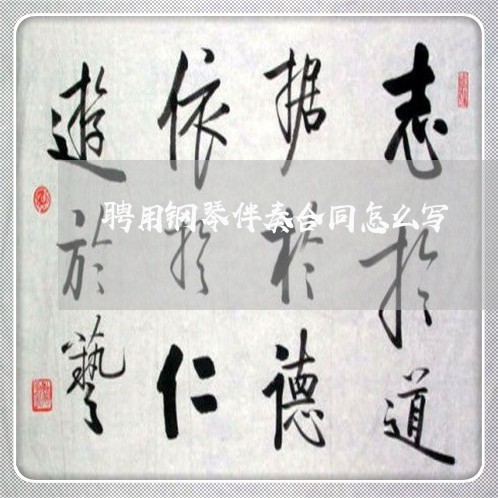 志於道
据於德
依於仁
遊於藝
聘用钢琴伴奏合同怎么写